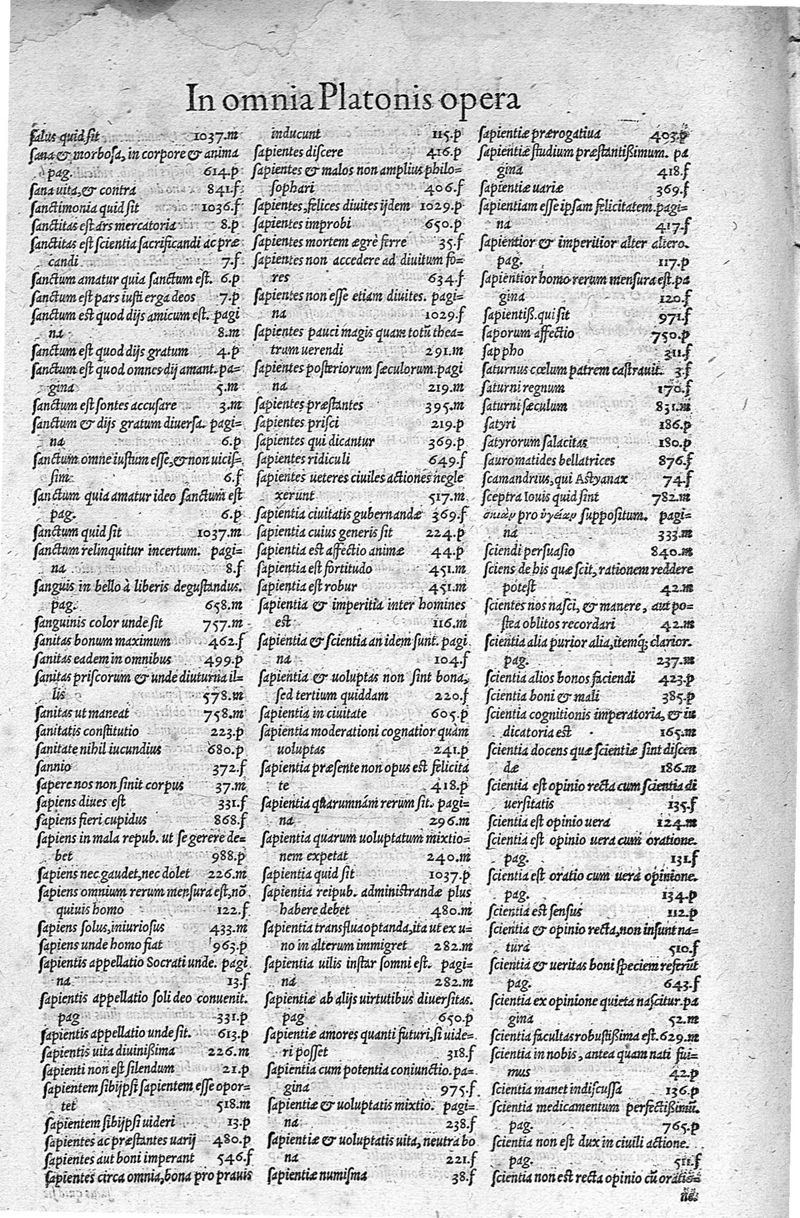 In omnia Platonis opera
ſalus quid ſit 1037.m
ſana & morboſa, in corpore & anima
pag. 614.p
ſana uita, & contra 841.f
ſanctimonia quid ſit 1036.f
ſanctitas est ars mercatoria 8.p
ſanctitas est ſcientia ſacrificandi ac præ
candi 7.f
ſanctum amatur quia ſanctum est. 6.p
ſanctum est pars iusti erga deos 7.p
ſanctum est quod dijs amicum est. pagi
na 8.m
ſanctum est quod dijs gratum 4.p
ſanctum est quod omnes dij amant. pa-
gina 5.m
ſanctum est ſontes accuſare 3.m
ſanctum & dijs gratum diuerſa. pagi-
na 6.p
ſanctum omne iustum eſſe, & non uiciſ-
ſim 6.f
ſanctum quia amatur ideo ſanctum est
pag. 6.p
ſanctum quid ſit 1037.m
ſanctum relinquitur incertum. pagi-
na 8.f
ſanguis in bello à liberis degustandus.
pag. 658.m
ſanguinis color unde ſit 757.m
ſanitas bonum maximum 462.f
ſanitas eadem in omnibus 499.p
ſanitas priſcorum & unde diuturna il-
lis 578.m
ſanitas ut maneat 758.m
ſanitatis constitutio 223.p
ſanitate nihil iucundius 680.p
ſannio 372.f
ſapere nos non ſinit corpus 37.m
ſapiens diues est 331.f
ſapiens fieri cupidus 868.f
ſapiens in mala repub. ut ſe gerere de-
bet 988.p
ſapiens nec gaudet, nec dolet 226.m
ſapiens omnium rerum menſura est, nō
quiuis homo 122.f
ſapiens ſolus, iniurioſus 433.m
ſapiens unde homo fiat 963.p
ſapientis appellatio Socrati unde. pagi
na 13.f
ſapientis appellatio ſoli deo conuenit.
pag 331.p
ſapientis appellatio unde ſit. 613.p
ſapientis uita diuinißima 226.m
ſapienti non est ſilendum 21.p
ſapientem ſibijpſi ſapientem eſſe opor-
tet 518.m
ſapientem ſibijpſi uideri 13.p
ſapientes ac præstantes uarij 480.p
ſapientes aut boni imperant 546.f
ſapientes circa omnia, bona pro prauis
inducunt 115.p
ſapientes diſcere 416.p
ſapientes & malos non amplius philo-
ſophari 406.f
ſapientes, felices diuites ijdem 1029.p
ſapientes improbi 650.p
ſapientes mortem ægrè ferre 35.f
ſapientes non accedere ad diuitum fo-
res 634.f
ſapientes non eſſe etiam diuites. pagi-
na 1029.f
ſapientes pauci magis quam totū thea-
trum uerendi 291.m
ſapientes posteriorum ſæculorum. pagi
na 219.m
ſapientes præstantes 395.m
ſapientes priſci 219.p
ſapientes qui dicantur 369.p
ſapientes ridiculi 649.f
ſapientes ueteres ciuiles actiones negle
xerunt 517.m
ſapientia ciuitatis gubernandæ 369.f
ſapientia cuius generis ſit 224.p
ſapientia est affectio animæ 44.p
ſapientia est fortitudo 451.m
ſapientia est robur 451.m
ſapientia & imperitia inter homines
est 116.m
ſapientia & ſcientia an idem ſunt. pagi
na 104.f
ſapientia & uoluptas non ſint bona,
ſed tertium quiddam 220.f
ſapientia in ciuitate 605.p
ſapientia moderationi cognatior quàm
uoluptas 241.p
ſapientia præſente non opus est felicita
te 418.p
ſapientia quarumnàm rerum ſit. pagi-
na 296.m
ſapientia quarum uoluptatum mixtio-
nem expetat 240.m
ſapientia quid ſit 1037.p
ſapientia reipub. administrandæ plus
habere debet 480.m
ſapientia transflua optanda, ita ut ex u-
no in alterum immigret 282.m
ſapientia uilis instar ſomni est. pagi-
na 282.m
ſapientiæ ab alijs uirtutibus diuerſitas.
pag 650.p
ſapientiæ amores quanti futuri, ſi uide-
ri poſſet 318.f
ſapientia cum potentia coniunctio. pa-
gina 975.f
ſapientiæ & uoluptatis mixtio. pagi-
na 238.f
ſapientiæ & uoluptatis uita, neutra bo
na 221.f
ſapientiæ numiſma 38.f
ſapientiæ prærogatiua 403.p
ſapientiæ studium præstantißimum. pa
gina 418.f
ſapientiæ uariæ 369.f
ſapientiam eſſe ipſam felicitatem. pagi-
na 417.f
ſapientior & imperitior alter altero.
pag. 117.p
ſapientior homo rerum menſura est. pa
gina 120.f
ſapientiß. qui ſit 971.f
ſaporum affectio 750.p
ſappho 311.f
ſaturnus cœlum patrem castrauit. 3.f
ſaturni regnum 170.f
ſaturni ſæculum 831.m
ſatyri 186.p
ſatyrorum ſalacitas 180.p
ſauromatides bellatrices 876.f
ſcamandrius, qui Astyanax 74.f
ſceptra Iouis quid ſint 782.m
pro ſuppoſitum. pagi-
na 333.m
ſciendi perſuaſio 840.m
ſciens de his quæ ſcit, rationem reddere
potest 42.m
ſcientes nos naſci, & manere, aut po-
stea oblitos recordari 42.m
ſcientia alia purior alia, itemq́; clarior.
pag. 237.m
ſcientia alios bonos faciendi 423.p
ſcientia boni & mali 385.p
ſcientia cognitionis imperatoria, & iu
dicatoria est 165.m
ſcientia docens quæ ſcientiæ ſint diſcen
dæ 186.m
ſcientia est opinio recta cum ſcientia di
uerſitatis 135.f
ſcientia est opinio uera 124.m
ſcientia est opinio uera cum oratione.
pag. 131.f
ſcientia est oratio cum uera opinione.
pag. 134.p
ſcientia est ſenſus 112.p
ſcientia & opinio recta, non inſunt na-
tura 510.f
ſcientia & ueritas boni ſpeciem referūt
pag. 643.f
ſcientia ex opinione quieta naſcitur. pa
gina 52.m
ſcientia facultas robustißima est. 629.m
ſcientia in nobis, antea quam nati fui-
mus 42.p
ſcientia manet indiſcuſſa 136.p
ſcientia medicamentum perfectißimū.
pag. 765.p
ſcientia non est dux in ciuili actione.
pag. 511.f
ſcientia non est recta opinio cū oratio-
nes